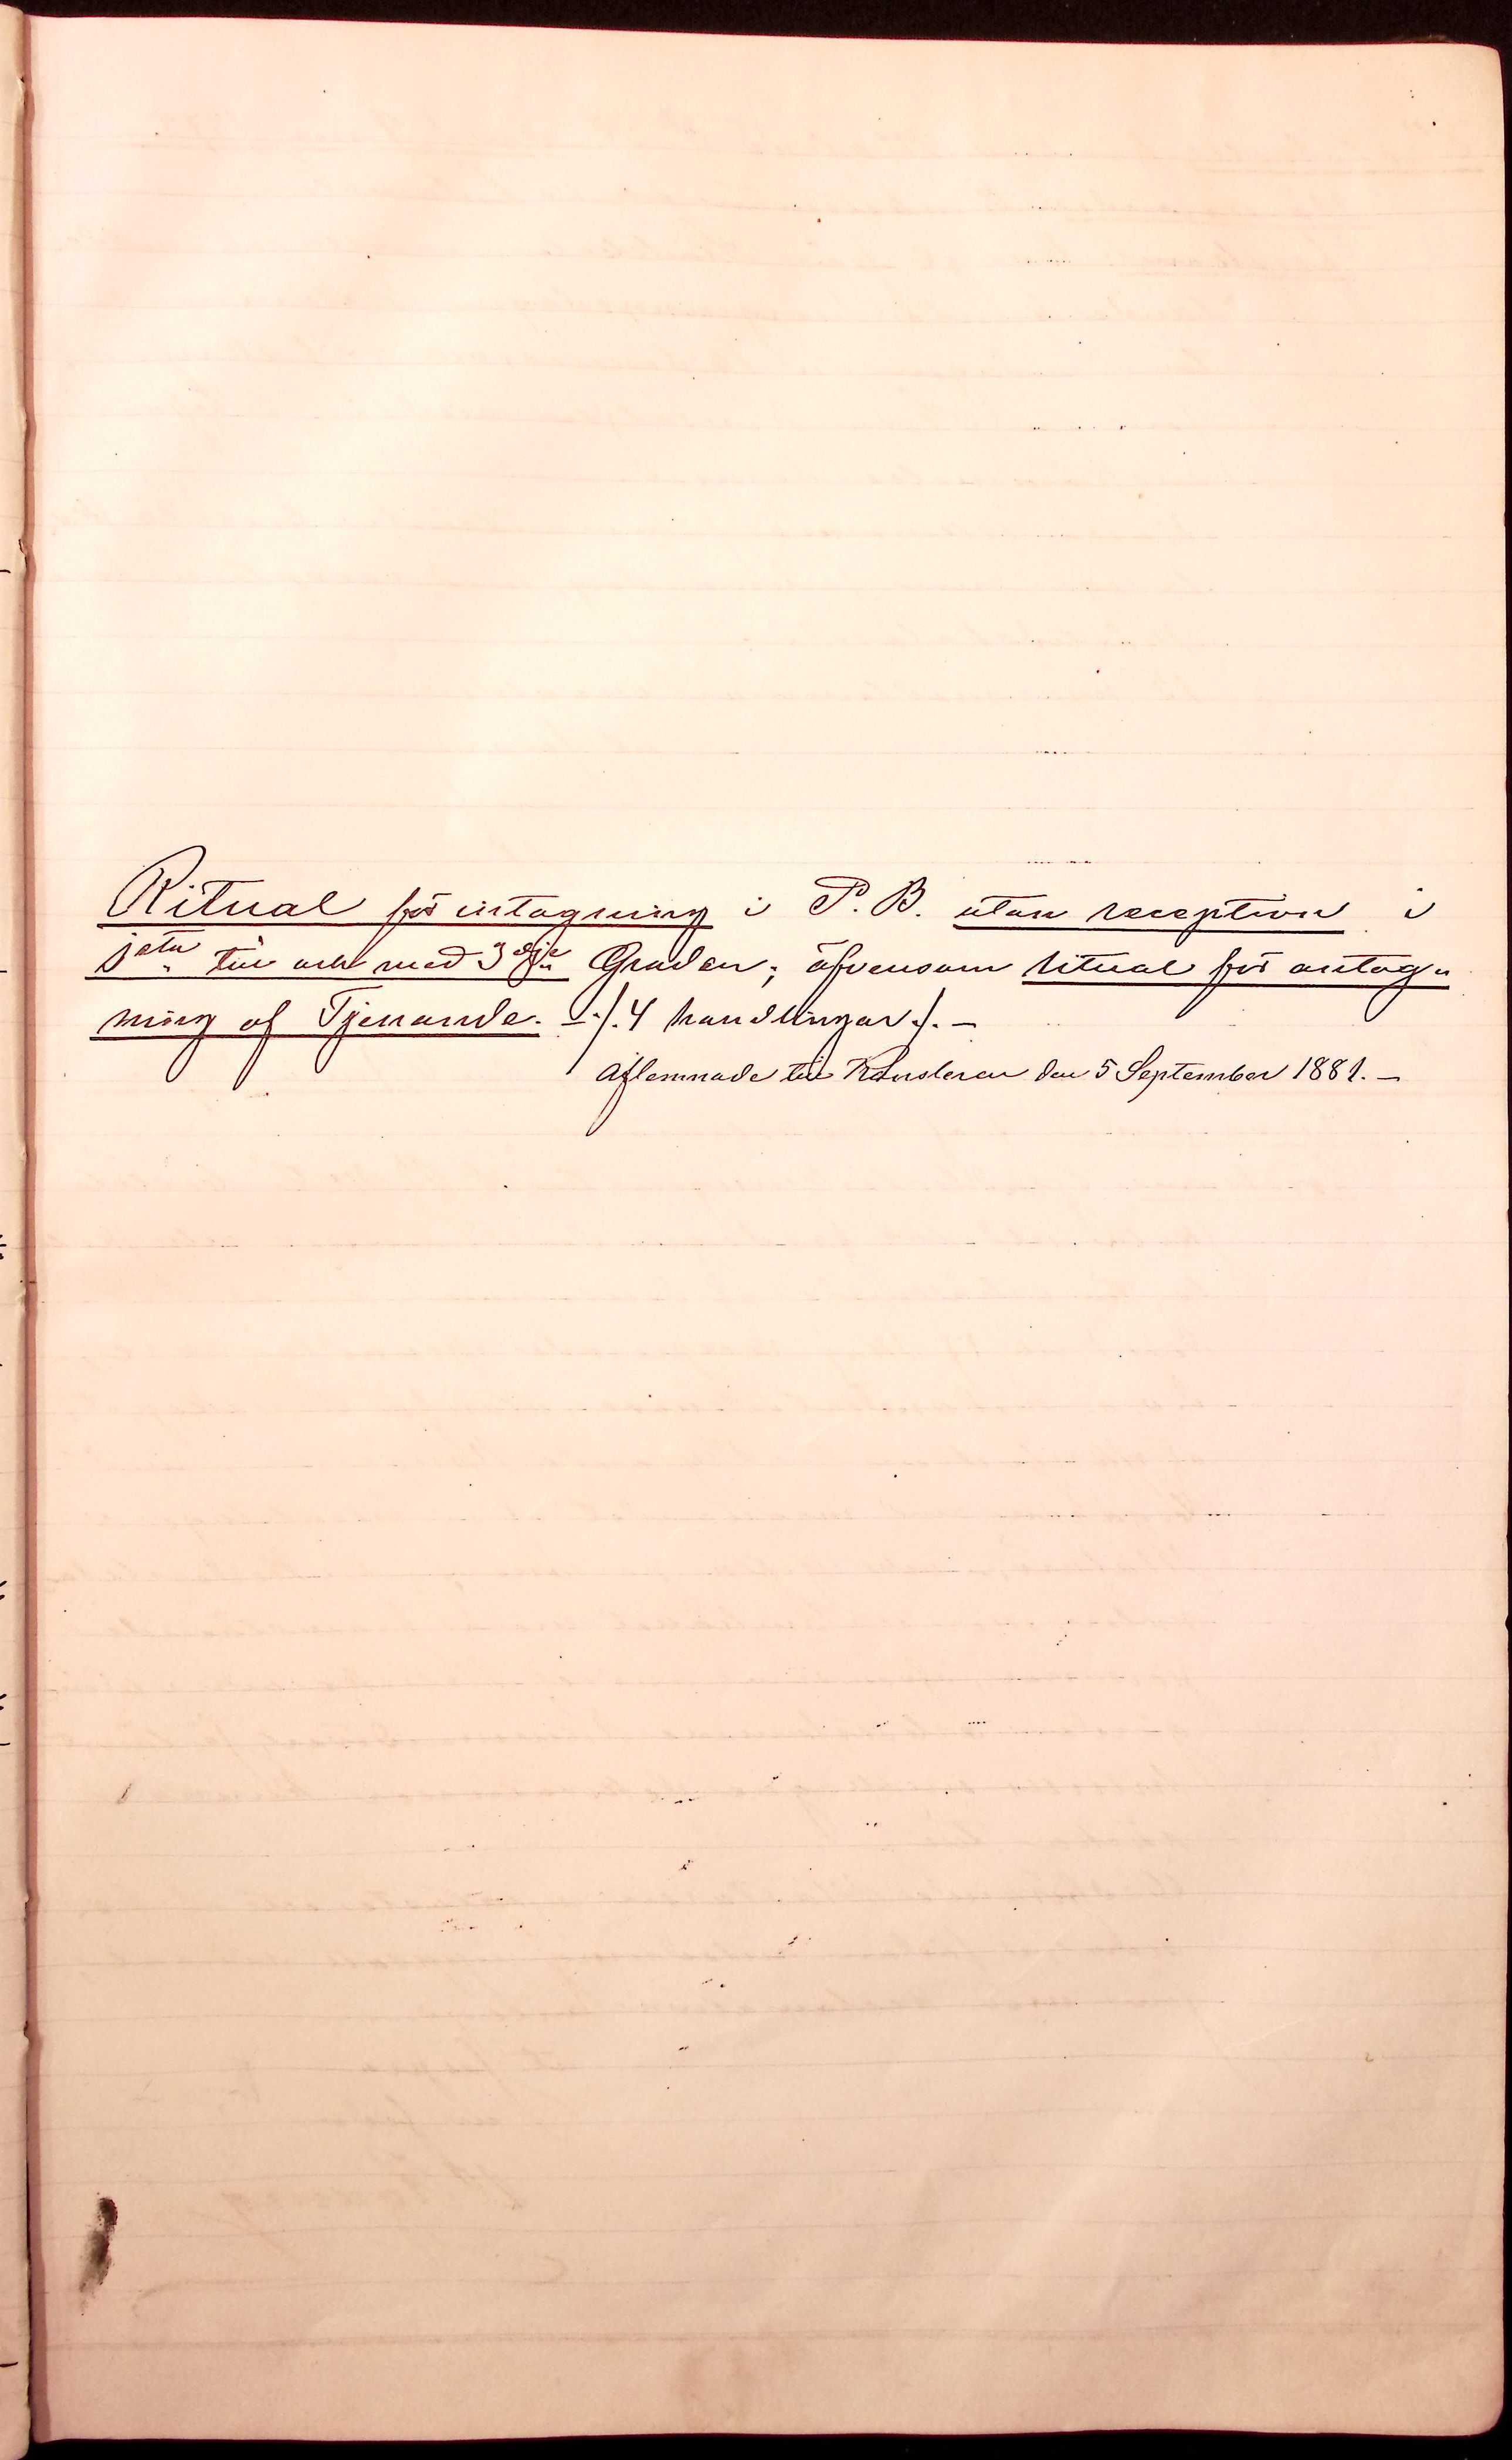 Ritual för intagning i P. B. utan reception i
1sta till och med 3dje Graden; äfvensom ritual för antag-
ning af Tjenande. – ./. 4 handlingar ./. –
Aflemnade till Kansleren den 5 September 1881. –